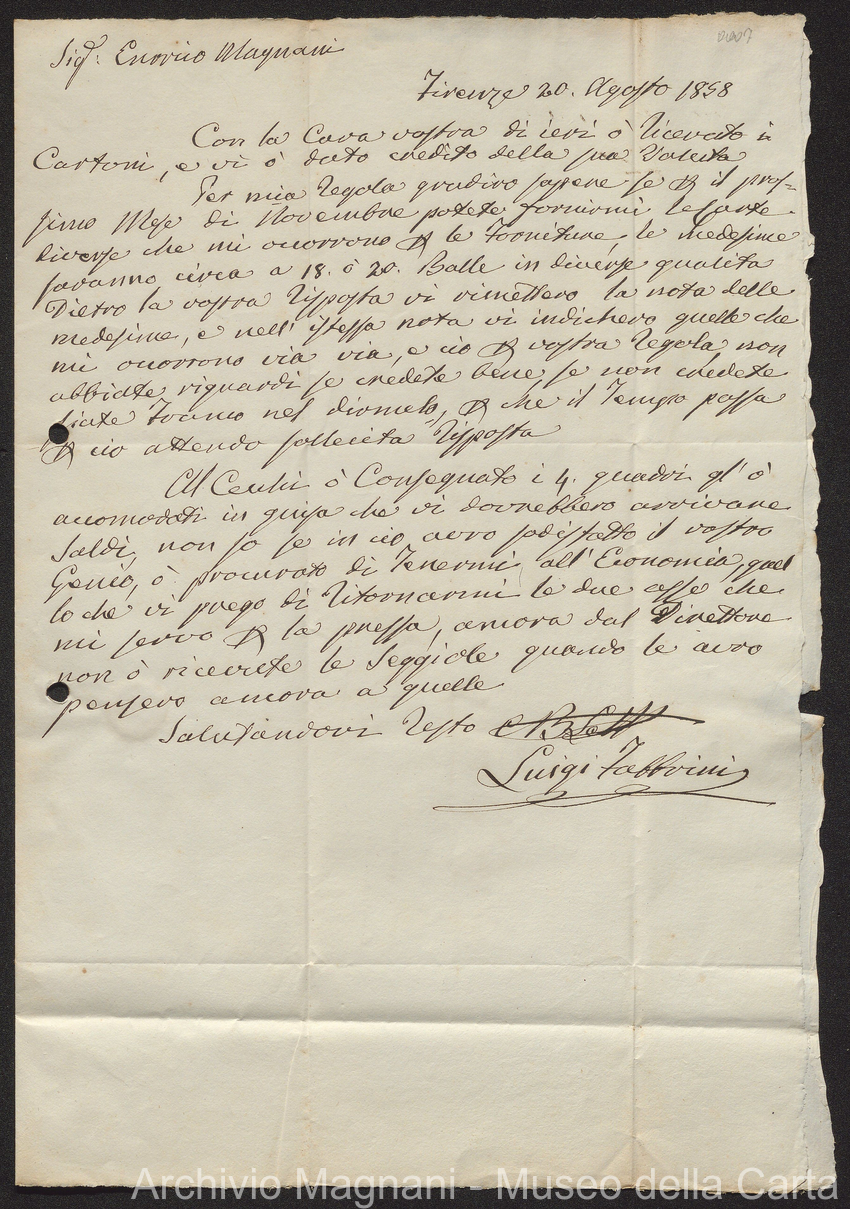 Sigr. Enrico Magnani
Firenze 20. Agosto 1858
Con la Cara vostra di ieri ò ricevuto i
Cartoni, e vi ò dato credito della sua Valuta
Per mia regola gradirò sapere se il pros=
simo Mese di Novembre potete fornirmi le Carte
diverse che mi occorrono le Forniture, le medesime
saranno circa a 18. ò 20. Balle in diverse qualita
Dietro la vostra risposta vi rimettero la nota delle
medesime, e nell' istessa nota vi indichero quelle che
mi occorrono via via, e ciò vostra regola, non
abbiate riguardi se credete bene se non credete
siate Franco nel dirmelo, che il Tempo passa
ciò attendo sollecita risposta
Al Cecchi ò Consegnato i 4. quadri gl' ò
accomodati in guisa che vi dovrebbero arrivare
Saldi, non so se in ciò avro sodisfatto il vostro
Genio, ò procurato di Tenermi all' Economia, quel
lo che vi prego di ritornarmi le due asse che
mi servo la pressa, ancora dal Direttore
non ò ricevute le Seggiole quando le avro
pensero ancora a quelle
Salutandovi resto
Luigi Fabbrini
Archivio Magnani - Museo della Carta